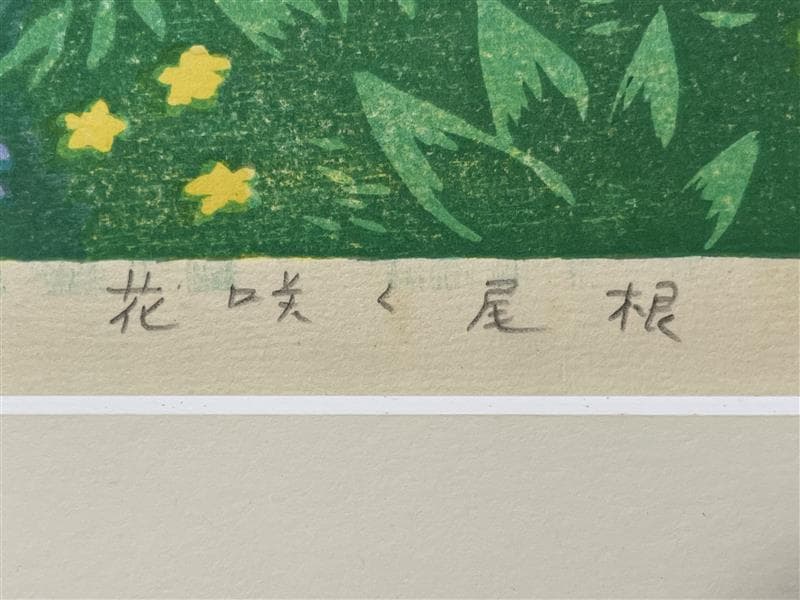 花咲く尾根